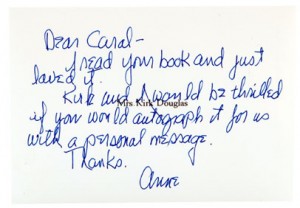 Dear Carol-
I read your book and just
loved it.
Kirk and I would be thrilled
Mrs Kirk Douglas
if you would autograph it for us
with a personal message.
Thanks.
Anne